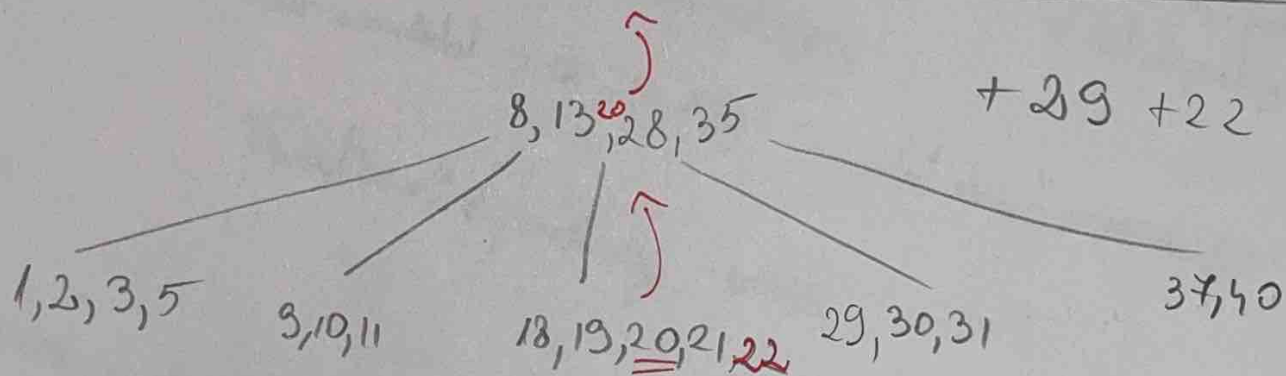 8, 13 20, 28, 35 +29 +22
1, 2, 3, 5 9, 10, 11 18, 19, 20, 21, 22 29, 30, 31 37, 40